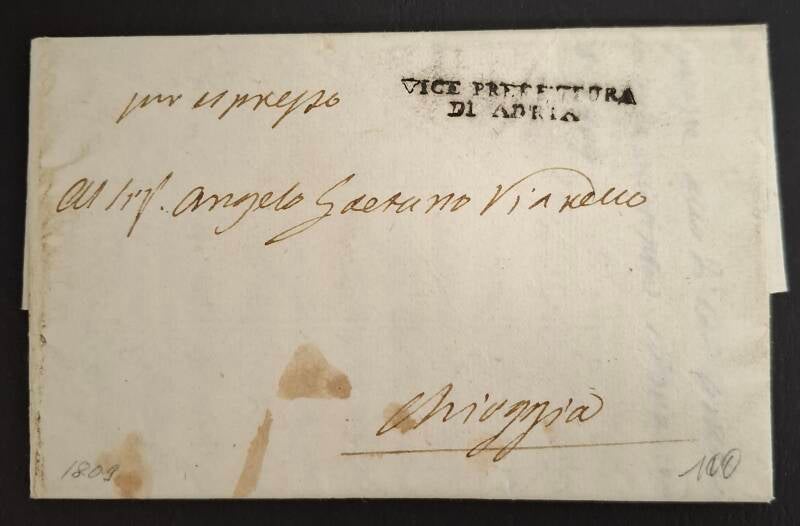 per espresso
VICE PREFETTURA
DI ADRIA
Al Sig.r Angelo Gaetano Vianello
Chioggia
1809
120